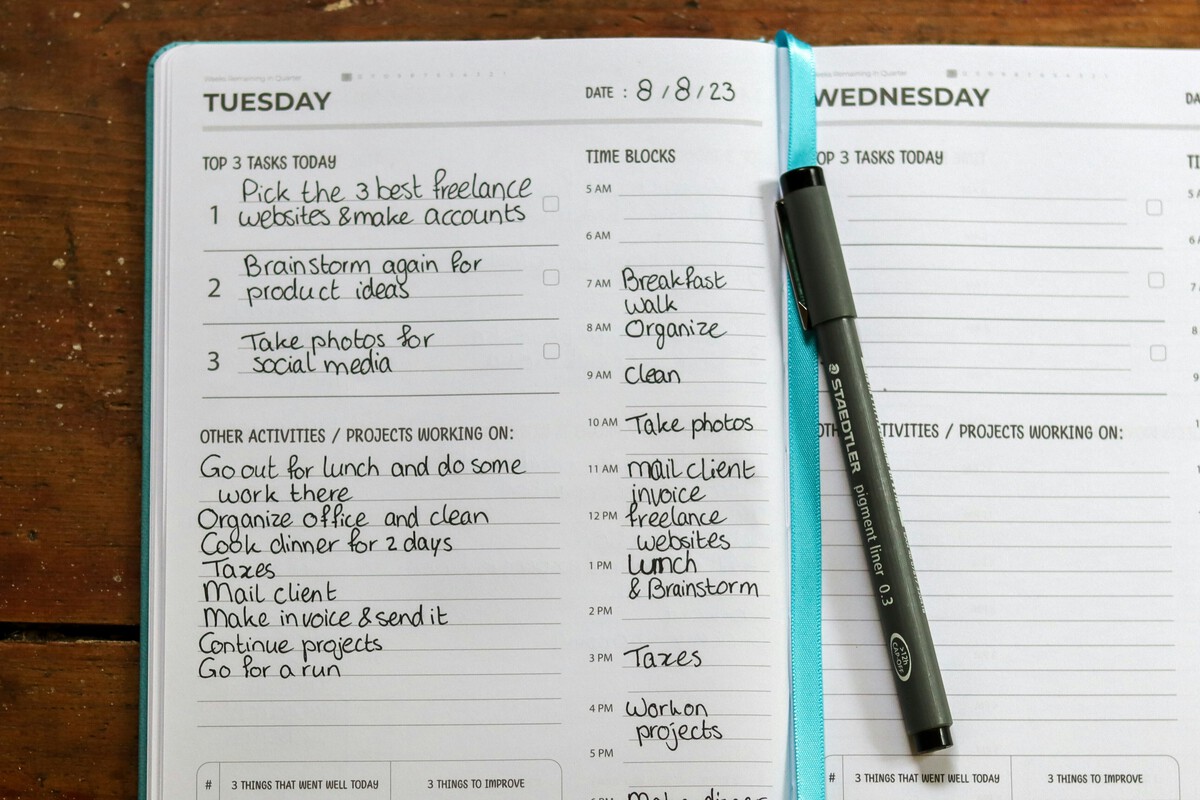 Weeks Remaining in Quarter
TUESDAY
DATE : 8 / 8 / 23
TOP 3 TASKS TODAY
1 Pick the 3 best freelance
websites & make accounts
2 Brainstorm again for
product ideas
3 Take photos for
social media
OTHER ACTIVITIES / PROJECTS WORKING ON:
Go out for lunch and do some
work there
Organize office and clean
Cook dinner for 2 days
Taxes
Mail client
Make invoice & send it
Continue projects
Go for a run
# 3 THINGS THAT WENT WELL TODAY 3 THINGS TO IMPROVE
TIME BLOCKS
5 AM
6 AM
7 AM Breakfast
walk
8 AM Organize
9 AM Clean
10 AM Take photos
11 AM mail client
invoice
12 PM freelance
websites
1 PM Lunch
& Brainstorm
2 PM
3 PM Taxes
4 PM Work on
projects
5 PM
STAEDTLER pigment liner 0.3
>12h
CAP-OFF
Remaining in Quarter
WEDNESDAY
DA
OP 3 TASKS TODAY
TI
OTH TIVITIES / PROJECTS WORKING ON:
# 3 THINGS THAT WENT WELL TODAY 3 THINGS TO IMPROVE